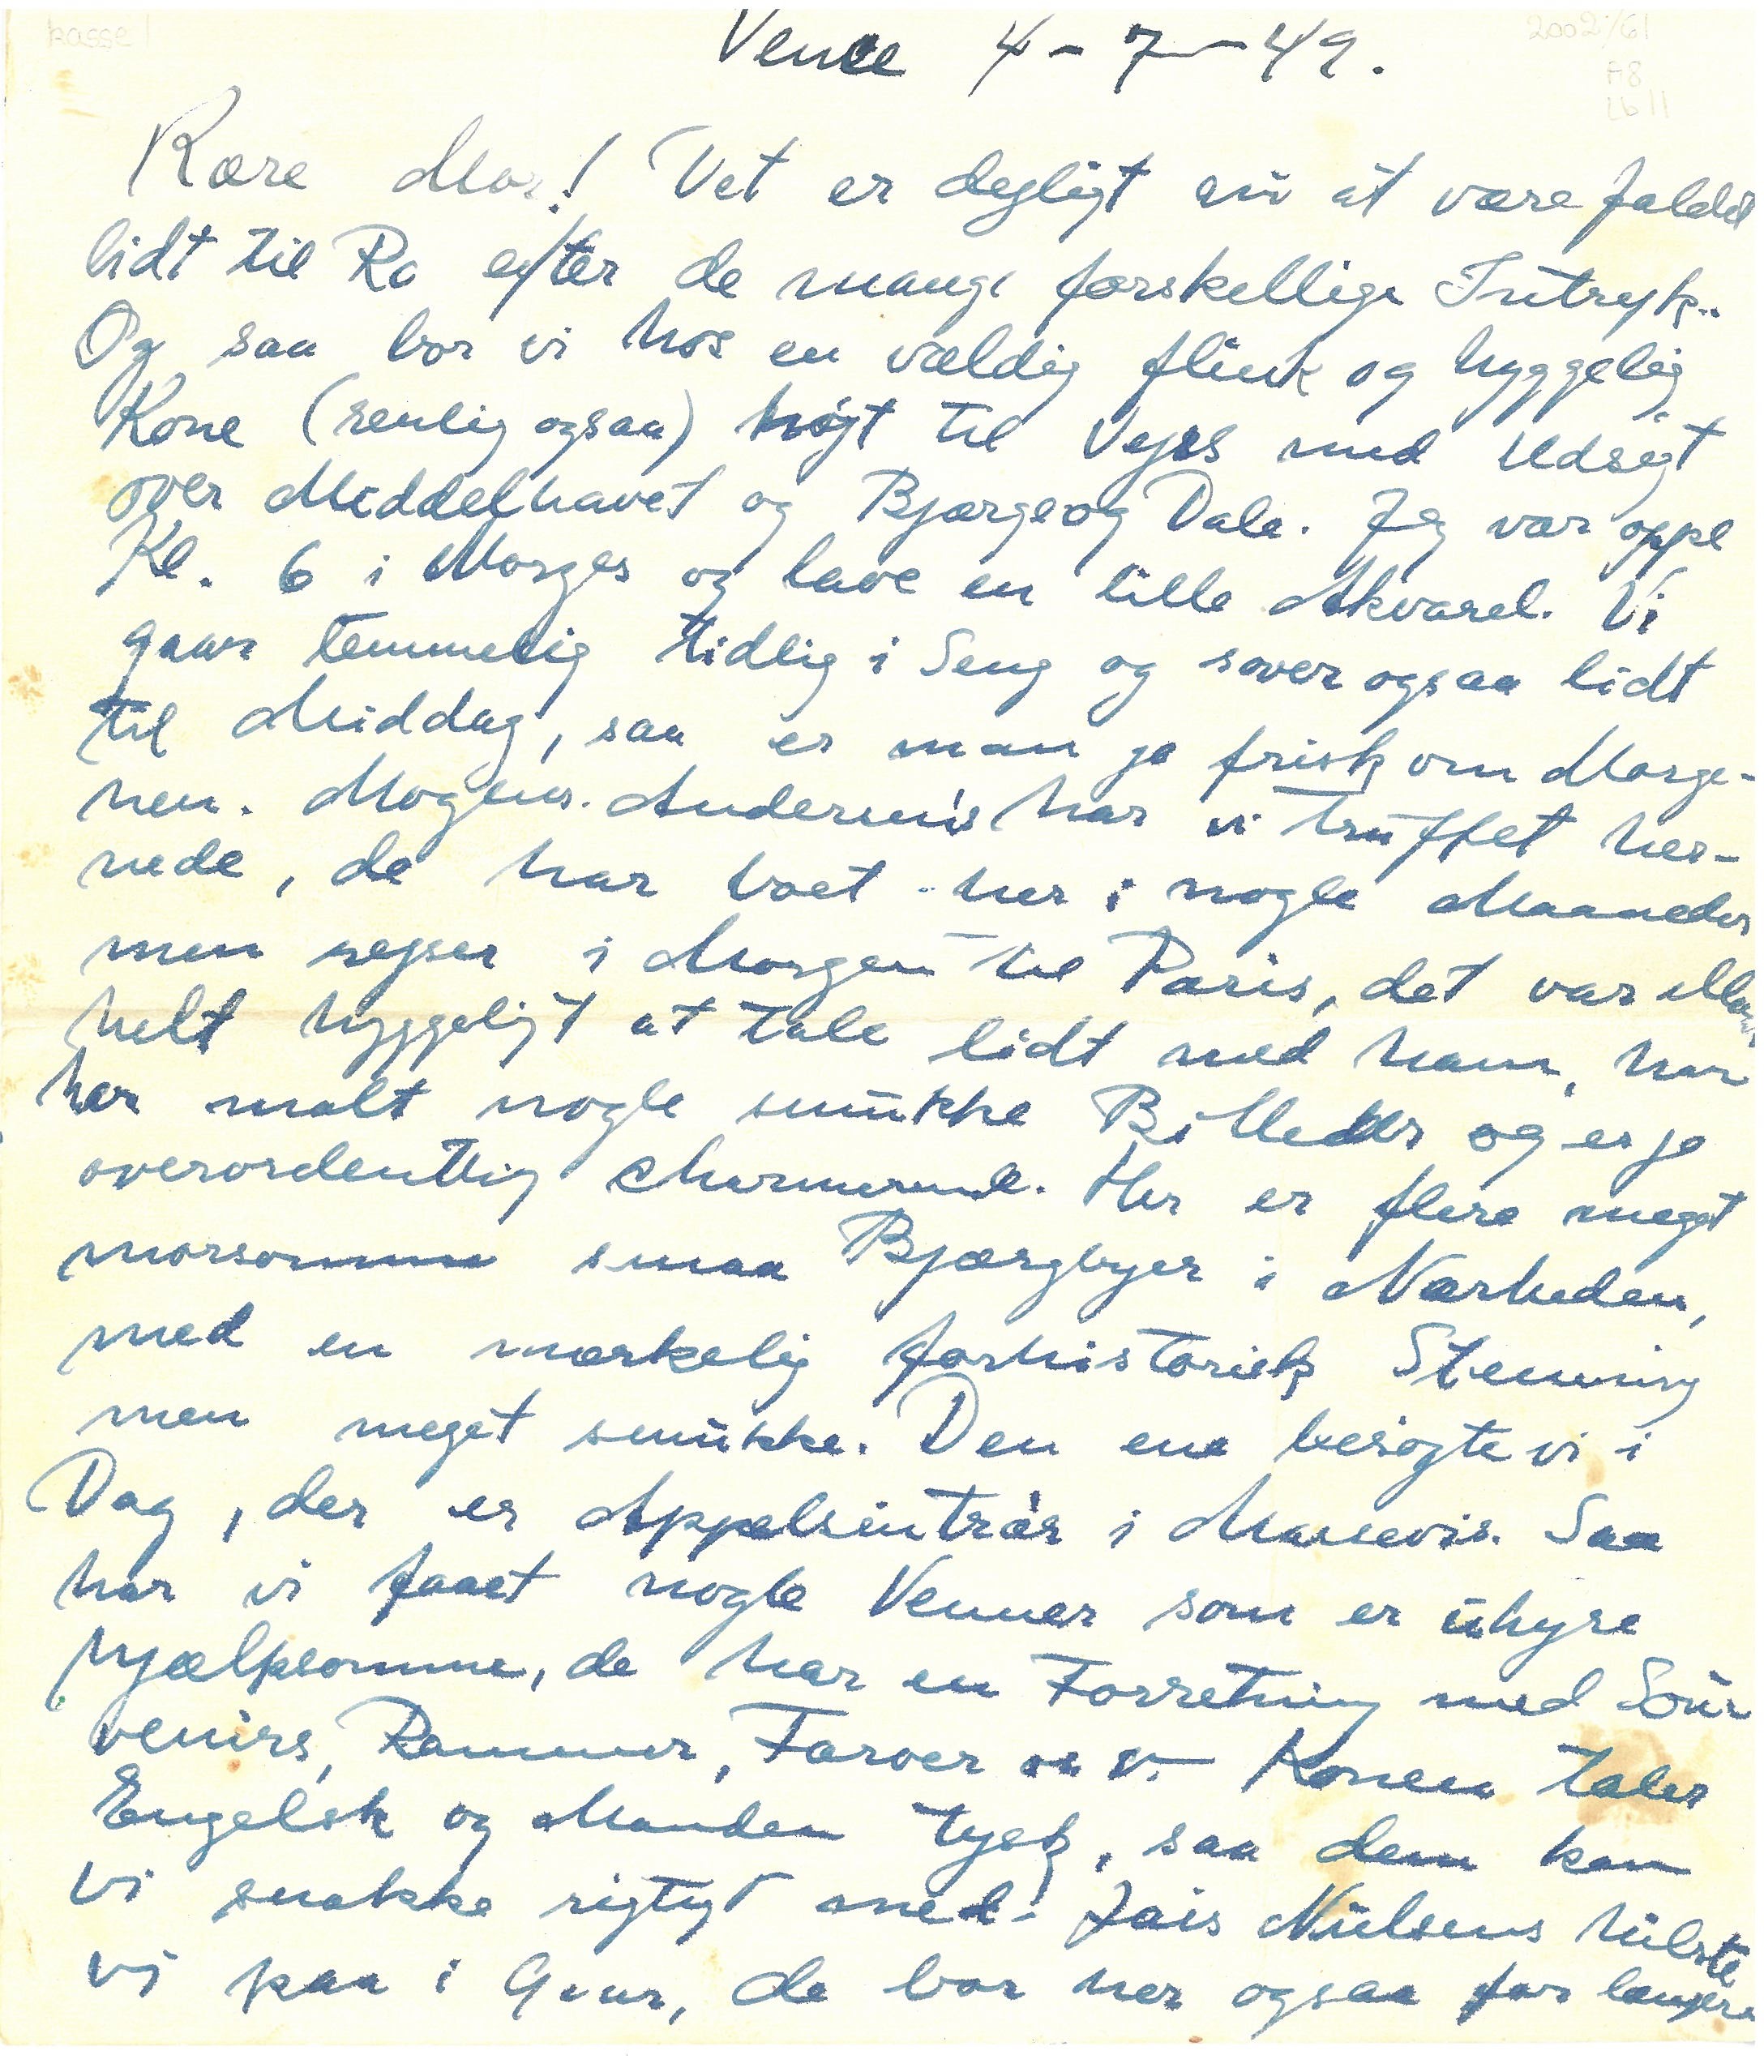 kasse 1
2002/61
A8
Lb 11
Vence 4-7-49.
Kære Mor! Det er dejligt nu at være faldet
lidt til Ro efter de mange forskellige Intryk..
Og saa bor vi hos en vældig flink og hyggelig
Kone (renlig ogsaa) højt til Vejrs med Udsigt
over Middelhavet og Bjærge og Dale. Jeg var oppe
Kl. 6 i Morges og lave en lille Akvarel. Vi
gaar temmelig tidlig i Seng og sover ogsaa lidt
til Middag, saa er man jo frisk om Morge-
nen. Mogens Andersen's har vi truffet her-
nede, de har boet her i nogle Maaneder
men rejser i Morgen til Paris, det var
helt hyggeligt at tale lidt med ham, han
har malt nogle smukke Billeder og er jo
overordentlig charmerende. Her er flere meget
morsomme smaa Bjærgbyer i Nærheden,
med en mærkelig forhistorisk Stemning
men meget smukke. Den ene besøgte vi i
Dag, der er Appelsintrær i Massevis. Saa
har vi faaet nogle Venner som er uhyre
hjælpsomme, de har en Forretning med Sou-
venirs, Rammer, Farver o s v. Konen taler
Engelsk og Manden tysk, saa dem kan
vi snakke rigtigt med. Jais Nielsens hilste
vi paa i Gaar, de bor her ogsaa for længere